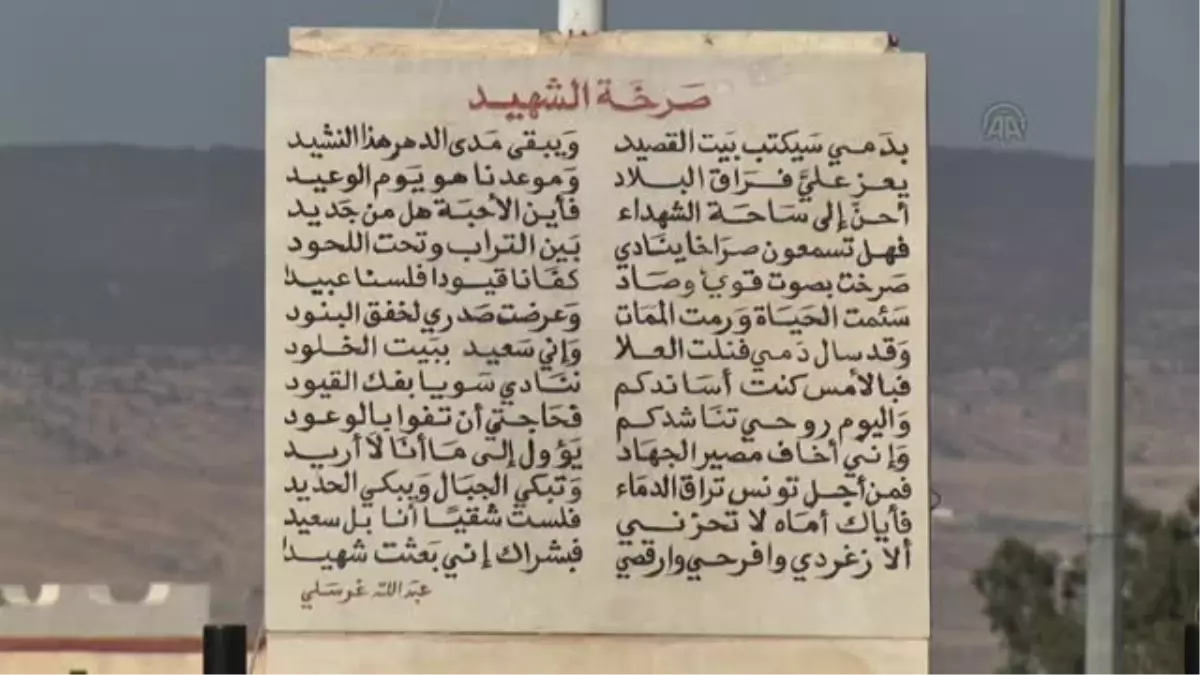 صرخة الشهيد
بدمي سيكتب بيت القصيد ويبقى مدى الدهر هذا النشيد
يعز عليَّ فراق البلاد وموعدنا هو يوم الوعيد
أحنّ إلى ساحة الشهداء فأين الأحبة هل من جديد
فهل تسمعون صراخا ينادي بين التراب وتحت اللحود
صرخت بصوت قوي وصاد كفانا قيودا فلسنا عبيدا
سئمت الحياة ورمت الممات وعرضت صدري لخفق البنود
وقد سال دمي فنلت العلا وإني سعيد ببيت الخلود
فبالأمس كنت أساندكم ننادي سويا بفك القيود
واليوم روحي تناشدكم فحاجتي أن تفوا بالوعود
وإني أخاف مصير الجهاد يؤول إلى ما أنا لا أريد
فمن أجل تونس تراق الدماء وتبكي الجبال ويبكي الحديد
فأياك أماه لا تحزني فلست شقيا أنا بل سعيد
ألا زغردي وافرحي وارقصي فبشراك إني بعثت شهيدا
عبد الله غرسلي
AA